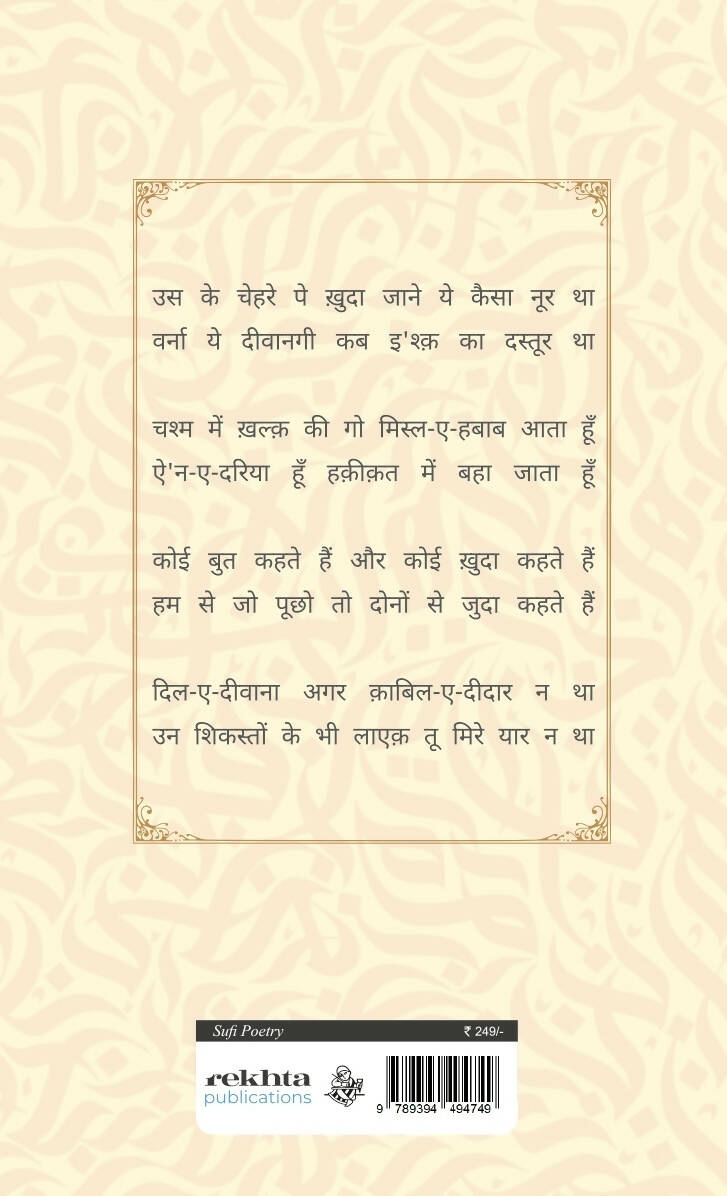 उस के चेहरे पे ख़ुदा जाने ये कैसा नूर था
वर्ना ये दीवानगी कब इ'श्क़ का दस्तूर था
चश्म में ख़ल्क़ की गो मिस्ल-ए-हबाब आता हूँ
ऐ'न-ए-दरिया हूँ हक़ीक़त में बहा जाता हूँ
कोई बुत कहते हैं और कोई ख़ुदा कहते हैं
हम से जो पूछो तो दोनों से जुदा कहते हैं
दिल-ए-दीवाना अगर क़ाबिल-ए-दीदार न था
उन शिकस्तों के भी लाएक़ तू मिरे यार न था
Sufi Poetry ₹ 249/-
rekhta
publications
9 789394 494749